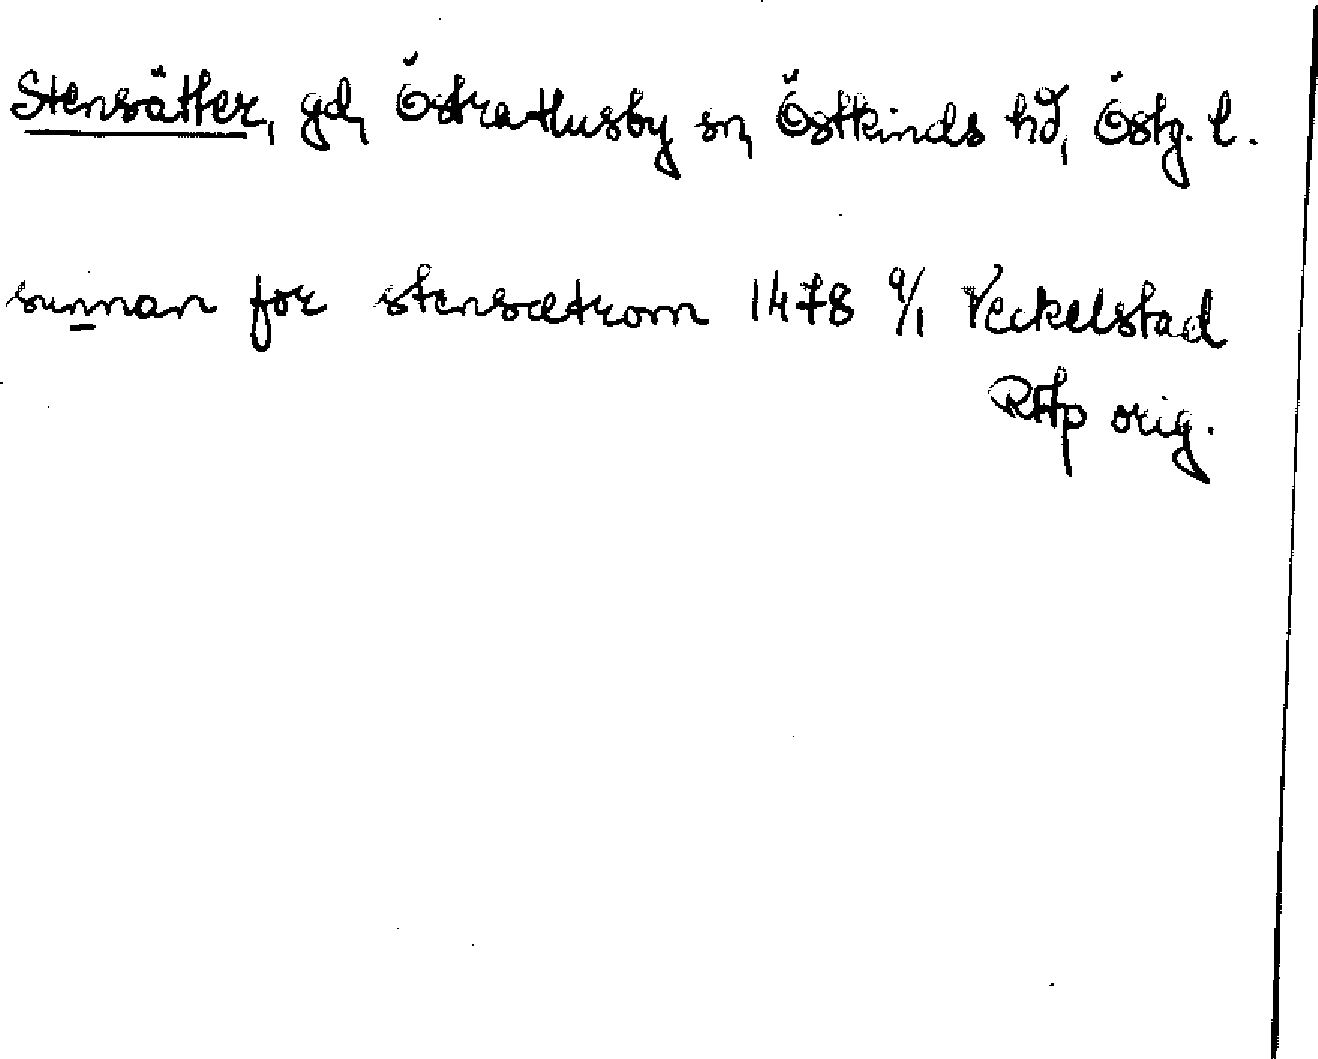 Stensätter, gd, Östra Husby sn, Östkinds hd, Östg. l.
sunnan for stensætrom 1478 9/1 Veckelstad
RAp orig.